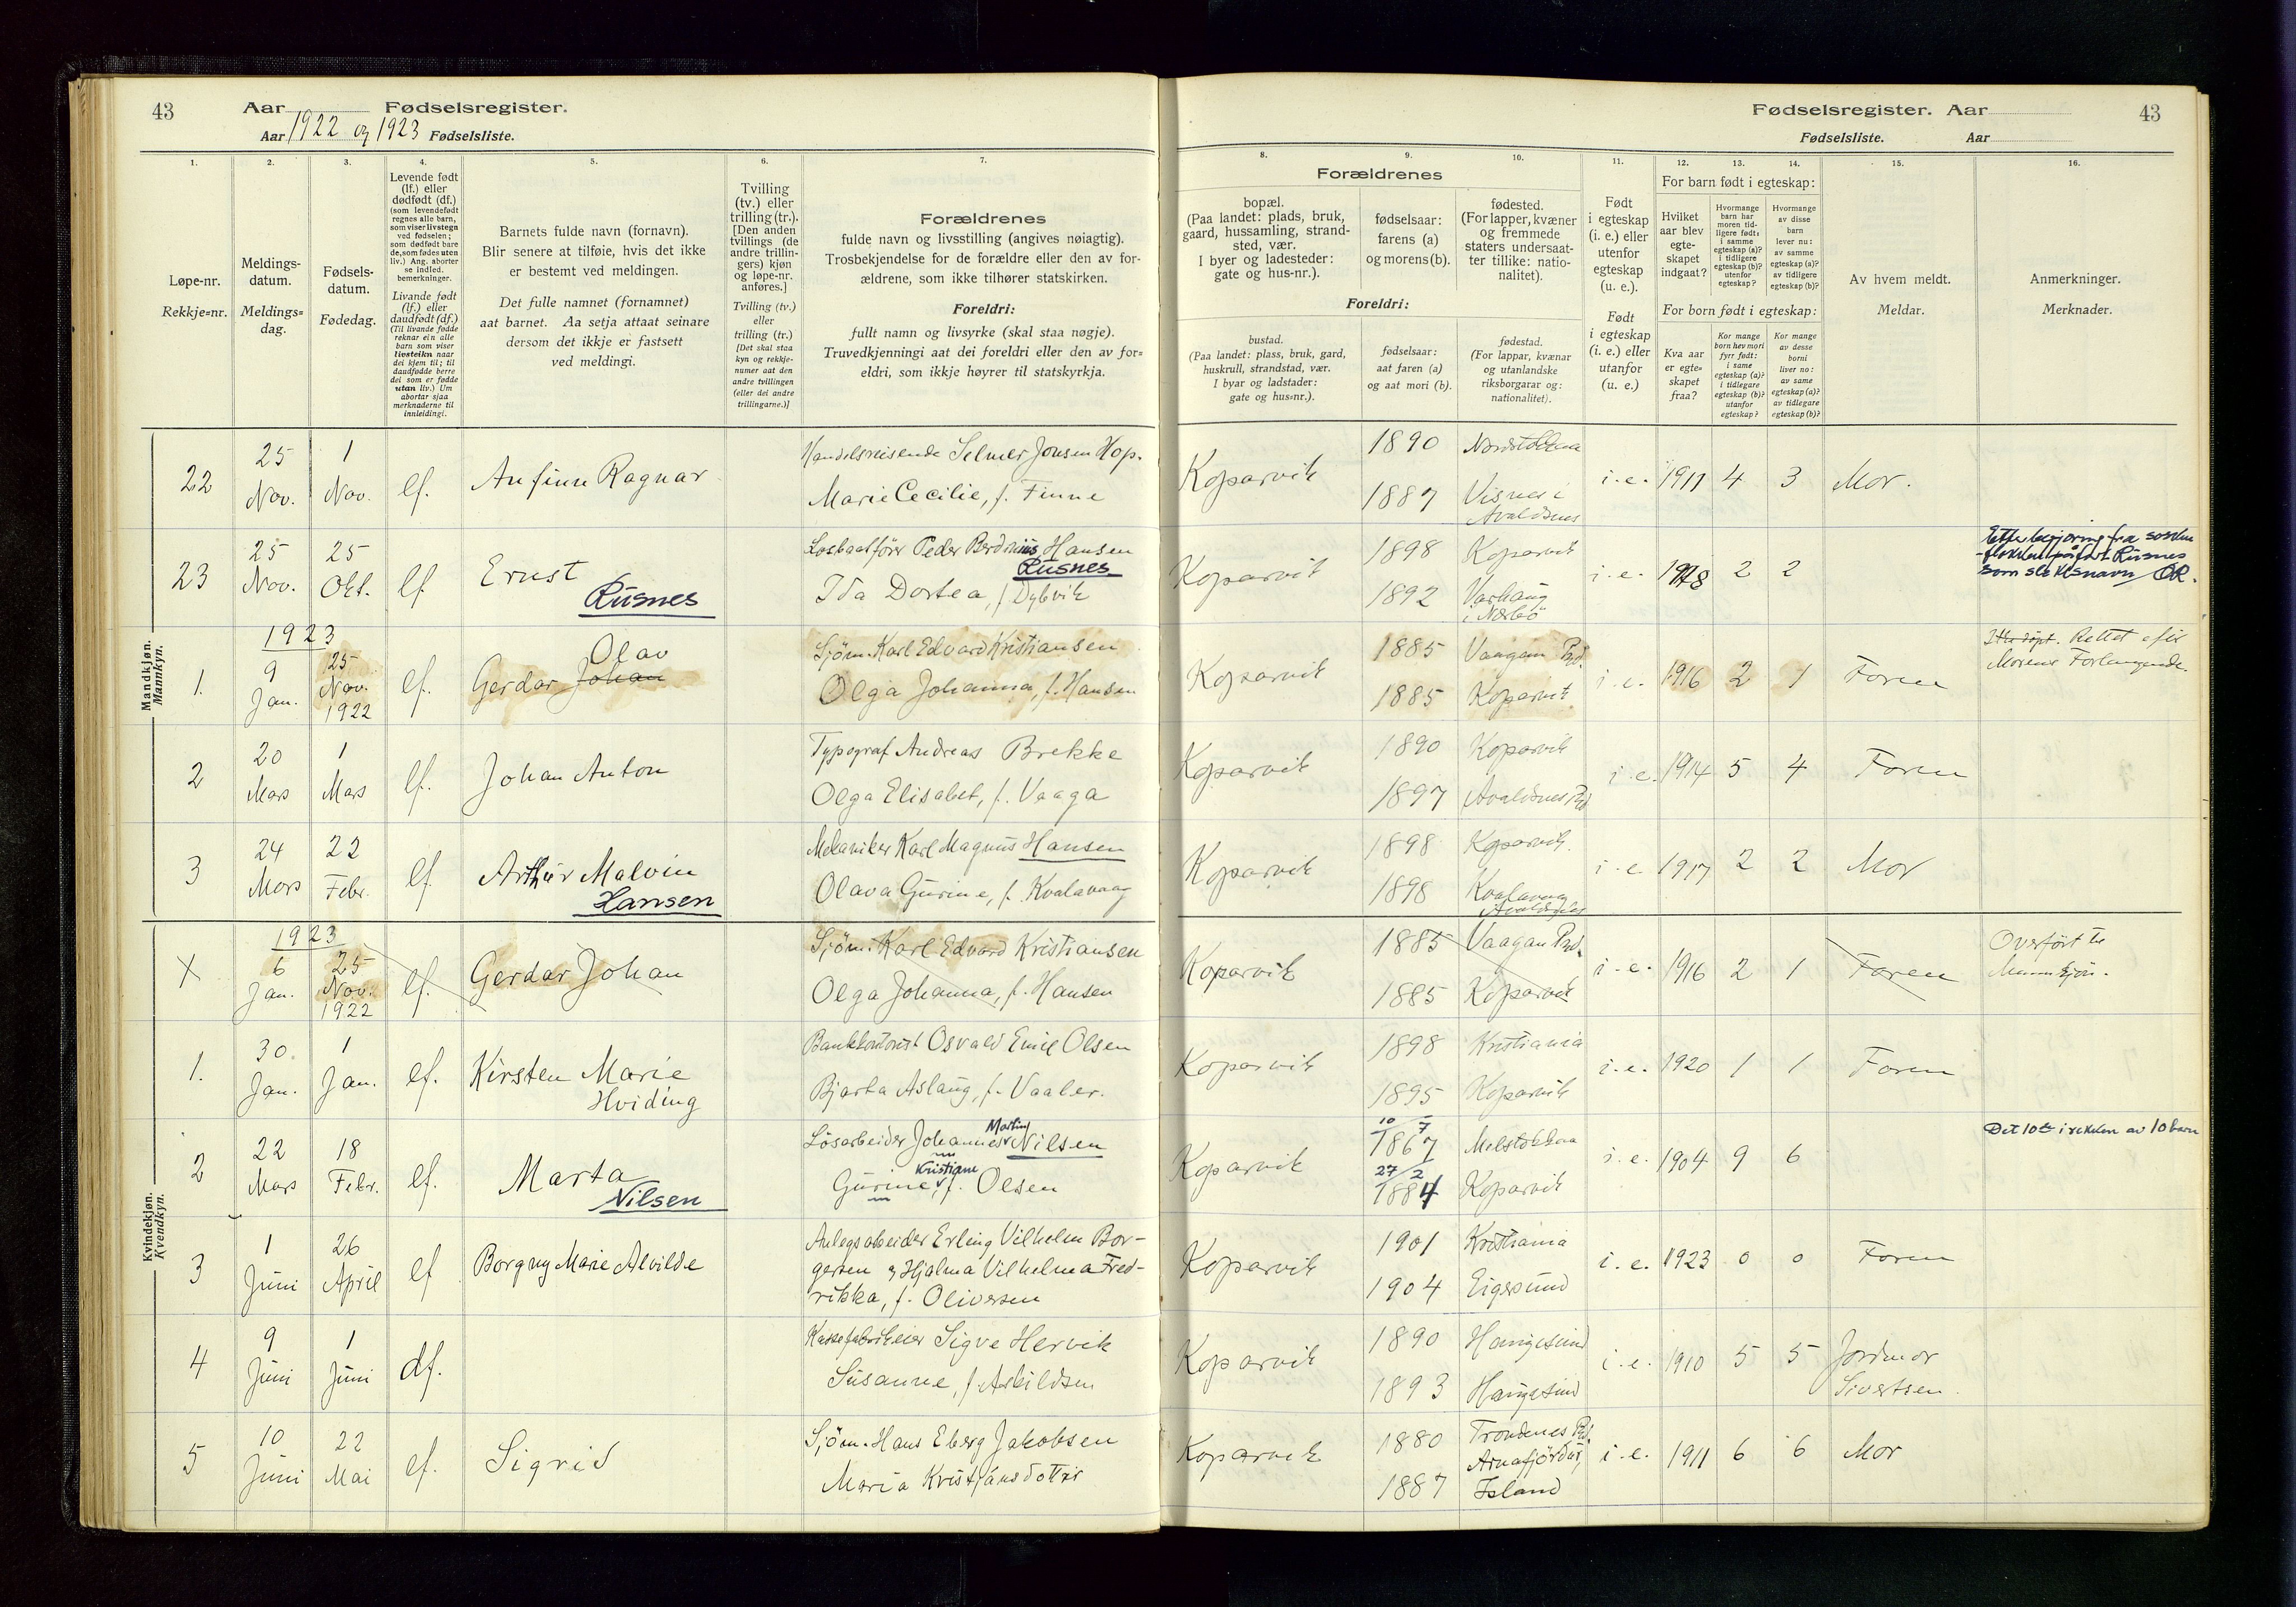 43
Aar Fødselsregister.
Aar 1922 og 1923 Fødselsliste.
Fødselsregister. Aar
43
Fødselsliste. Aar
1.
2.
3.
4.
5.
6.
7.
8.
9.
10.
11.
12.
13.
14.
15.
16.
Løpe-nr.
Rekkje=nr.
Meldings-
datum.
Meldings=
dag.
Fødsels-
datum.
Fødedag.
Levende født
(lf.) eller
dødfødt (df.)
(som levendefødt
regnes alle barn,
som viser livstegn
ved fødselen;
som dødfødt bare
de, som fødes uten
liv.) Ang. aborter
se indled.
bemerkninger.
Livande født
(lf.) eller
daudfødt (df.)
(Til livande fødde
reknar ein alle
barn som viser
livsteikn naar
dei kjem til; til
daudfødde berre
dei som er fødde
utan liv.) Um
abortar sjaa
merknaderne til
innleidingi.
Barnets fulde navn (fornavn).
Blir senere at tilføie, hvis det ikke
er bestemt ved meldingen.
Det fulle namnet (fornamnet)
aat barnet. Aa setja attaat seinare
dersom det ikkje er fastsett
ved meldingi.
Tvilling
(tv.) eller
trilling (tr.).
[Den anden
tvillings (de
andre trillin-
gers) kjøn
og løpe-nr.
anføres.]
Tvilling (tv.)
eller
trilling (tr.)
[Det skal staa
kyn og rekkje-
numer aat den
andre tvillingen
(eller dei andre
trillingarne.)]
Forældrenes
fulde navn og livsstilling (angives nøiagtig).
Trosbekjendelse for de forældre eller den av for-
ældrene, som ikke tilhører statskirken.
Foreldri:
fullt namn og livsyrke (skal staa nøgje).
Truvedkjenningi aat dei foreldri eller den av for=
eldri, som ikkje høyrer til statskyrkja.
Forældrenes
bopæl.
(Paa landet: plads, bruk,
gaard, hussamling, strand-
sted, vær.
I byer og ladesteder:
gate og hus-nr.).
fødselsaar:
farens (a)
og morens (b).
fødested.
(For lapper, kvæner
og fremmede
staters undersaat-
ter tillike: natio-
nalitet).
Foreldri:
bustad.
(Paa landet: plass, bruk, gard,
huskrull, strandstad, vær.
I byar og ladstader:
gate og hus=nr.).
fødselsaar:
aat faren (a)
og aat mori (b).
fødestad.
(For lappar, kvænar
og utanlandske
riksborgarar og:
nationalitet).
Født
i egteskap
(i. e.) eller
utenfor
egteskap
(u. e.).
Født
i egteskap
(i. e.) eller
utanfor
(u. e.)
For barn født i egteskap:
Hvilket
aar blev
egte-
skapet
indgaat?
Hvormange
barn har
moren tid-
ligere født:
i samme
egteskap (a)?
i tidligere
egteskap (b)?
utenfor
egteskap?
Hvormange
av disse
barn
lever nu:
av samme
egteskap (a)?
av tidligere
egteskap (b)?
For born født i egteskap:
Kva aar
er egte=
skapet
fraa?
Kor mange
born hev mori
fyrr født:
i same
egteskap (a)?
i tidlegare
egteskap (b)?
utanfor
egteskap?
Kor mange
av desse
borni
liver no:
av same
egteskap (a)?
av tidlegare
egteskap (b)?
Av hvem meldt.
Meldar.
Anmerkninger.
Merknader.
Mandkjøn.
Mannkyn.
22 25 Nov. 1 Nov. lf. Anfinn Ragnar
Handelsreisende Selmer Jonsen Hop.
Marie Cecilie, f. Finne
Koparvik 1890 1887 Visnes i Avaldsnes i. e. 1911 4 3 Mor.
23 25 Nov. 25 Okt. lf Ernst Rusnes
Losbaatfører Peder Berdinius Hansen
Rusnes
Ida Dortea, f Dybvik
Koparvik 1898 Koparvik 1892 Varhaug i Nærbö i. e. 1918 2 2
Etter begjæring fra søsken
-flokken påført Rusnes
som slektsnavn OR.
1923
1. 9 Jan. 25 Nov. 1922 lf. Gerdar Johan Olav
Sjöm. Karl Edvard Kristiansen
Olga Johanna, f. Hansen
Koparvik 1885 Vaagan Prd. 1885 Koparvik i. e. 1916 2 1 Faren
Rettet efter
Morens Forlangende.
2 20 Mars 1 Mars lf. Johan Anton
Typograf Andreas Brekke
Olga Elisabet, f. Vaaga
Koparvik 1890 Koparvik 1897 Avaldsnes Prd i. e. 1914 5 4 Faren
3 24 Mars 22 Febr. lf. Arthur Malvin
Hansen
Mekaniker Karl Magnus Hansen
Olava Gurine, f. Kvalavaag
Koparvik 1898 Koparvik. 1898 Kvalavaag Avaldsnes i. e 1917 2 2 Mor
Kvindekjøn.
Kvendkyn.
1923
X 6 Jan. 25 Nov. 1922 lf. Gerdar Johan
Sjöm. Karl Edvard Kristiansen
Olga Johanna, f. Hansen
Koparvik 1885 Vaagan Prd. 1885 Koparvik i. e. 1916 2 1 Faren
Overført til
Mannkjøn.
1. 30 Jan. 1 Jan. lf. Kirsten Marie
Hviding
Bankkontorist Osvald Emil Olsen
Bjarta Aslaug, f. Vaaler.
Koparvik 1898 Kristiania 1895 Koparvik i. e. 1920 1 1 Faren
2 22 Mars 18 Febr. lf. Marta
Nilsen
Lösarbeider Johannes Martin Nilsen
Gurine Kristiane, f. Olsen
Koparvik 10/7 1867 Melstokkaa 27/2 1884 Koparvik i. e. 1904 9 6
Det 10de i rekken av 10 barn
3 1 Juni 26 April lf Borgny Marie Alvilde
Anlegsarbeider Erling Vilhelm Bor-
gersen og Hjalma Vilhelmea Fred-
rikka, f. Oliversen
Koparvik 1901 Kristiania 1904 Eigersund i. e. 1923 0 0 Faren
4 9 Juni 1 Juni df.
Kassefabrikeier Sigve Hervik
Susanne, f. Askildsen
Koparvik 1890 Haugesund 1893 Haugesund i. e. 1910 5 5 Jordmor
Sivertsen
5 10 Juni 22 Mai lf. Sigrid
Sjöm. Hans Eberg Jakobsen
Maria Kristjansdottir
Koparvik 1880 Trondenes Prd. 1887 Arnafjördur,
Island i. e. 1911 6 6 Mor